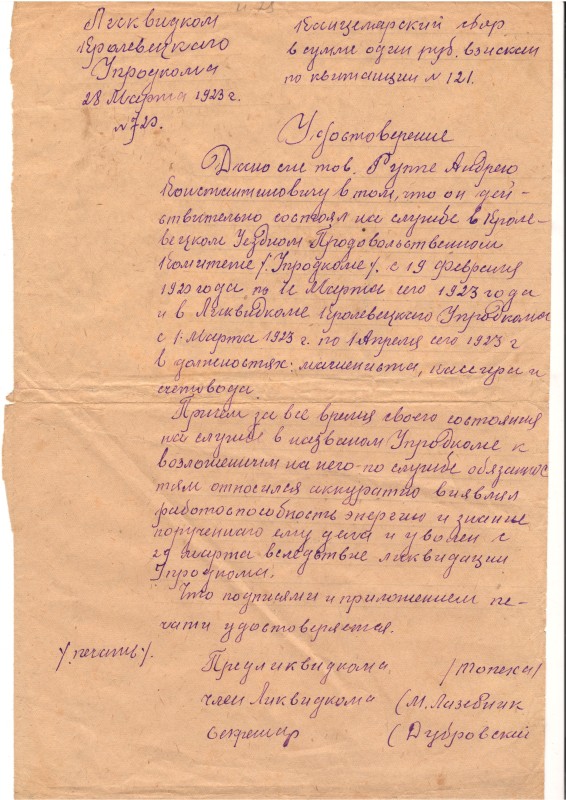 Ликвидком
Кролевецкого
Упродкома
28 Марта 1923 г.
№ 723.
Канцелярский сбор
в сумме один руб. взыскан
по квитанции № 121.
Удостоверение
Дано сие тов. Руппе Андрею
Константиновичу в том, что он дей-
ствительно состоял на службе в Кроле-
вецком Уездном Продовольственном
Комитете /Упродкоме/. с 19 февраля
1920 года по Марта сего 1923 года
и в Ликвидкоме Кролевецкого Упродкома
с 1. Марта 1923 г. по 1 Апреля сего 1923 г
в должностях: машиниста, кассира и
счетовода.
Причем за все время своего состояния
на службе в названом Упродкоме к
возложеним на него по службе обязанос
тям относился аккуратно виявлял
работоспособность энергию и знание
порученнаго ему дела и уволен с
29 марта вследствие ликвидации
Упродкома.
Что подписями и приложением пе-
чати удостоверяется.
/печать/.
Предликвидкома /Топеха/
член Ликвидкома (М. Лазебник
Секретар (Дубровский